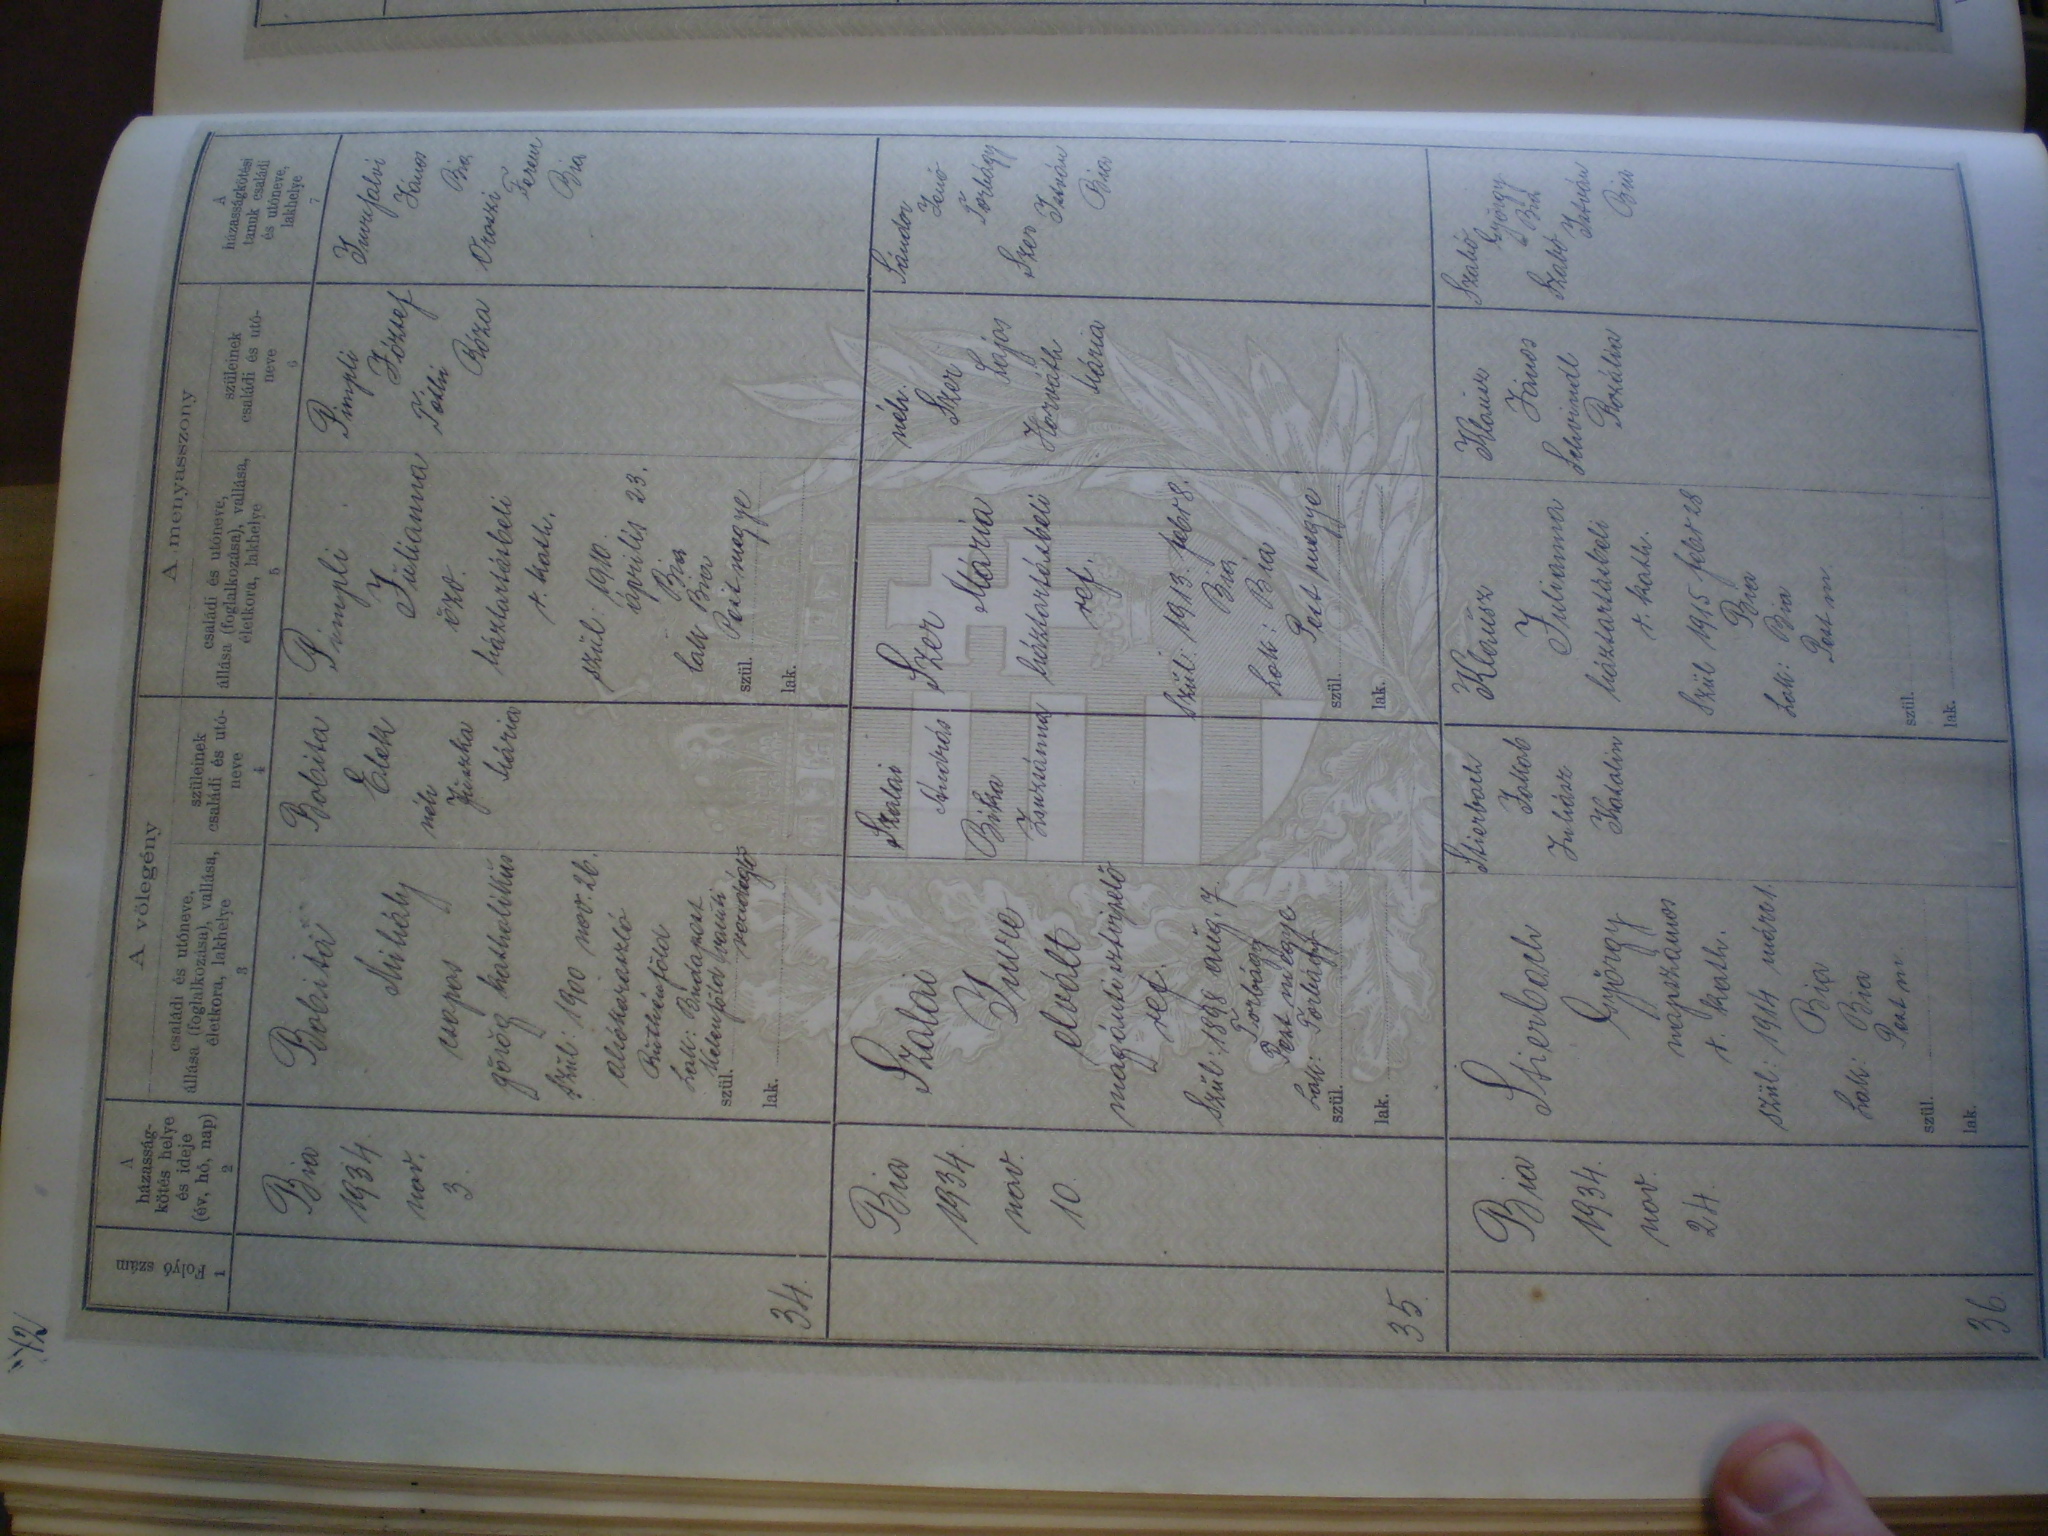 42
A menyasszony
A vőlegény
Folyó szám
1
A
házasság-
kötés helye
és ideje
(év, hó, nap)
2
családi és utóneve,
állása (foglalkozása), vallása,
életkora, lakhelye
3
szüleinek
családi és utó-
neve
4
családi és utóneve,
állása (foglalkozása), vallása,
életkora, lakhelye
5
szüleinek
családi és utó-
neve
6
A
házasságkötési
tanuk családi
és utóneve,
lakhelye
7
34.
Bia
1934.
nov.
3.
Bobita
Mihály
görög katholikus
Szül: 1900 nov. 26.
Lak: Budapest
szül.
lak.
Bobita
Elek
néh
Mária
Pimpli
Julianna
özv.
háztartásbeli
r. kath.
szül: 1910.
április 23.
Bia
lak Bia
Pest megye
szül.
lak.
Pimpli
József
Róza
János
Bia
Ferenc
Bia
35.
Bia
1934.
nov.
10.
Szalai
Imre
elvált
magántisztviselő
ref.
Szül: 1898 aug. 7.
Torbágy
Pest megye
Lak: Torbágy
szül.
lak.
Szalai
András
Bika
Zsuzsánna
Szer Mária
háztartásbeli
ref.
Szül: 1913. febr 8.
Bia
Lak: Bia
Pest megye
szül.
lak.
néh.
Szer
Lajos
Horváth
Mária
Sándor
Jenő
Torbágy
Szer
István
Bia
36
Bia
1934.
nov.
24.
Stierbach
György
napszámos
r. kath.
szül: 1914 márc 1.
Bia
Lak: Bia
Pest m
szül.
lak.
Stierbach
Jakab
Juhász
Katalin
Klausz
Julianna
háztartásbeli
r. kath.
Szül 1915 febr 28
Bia
Lak: Bia
Pest m.
szül.
lak.
Klausz
János
Schvindl
Rozália
Szabó
György
Bia
Szabó
István
Bia